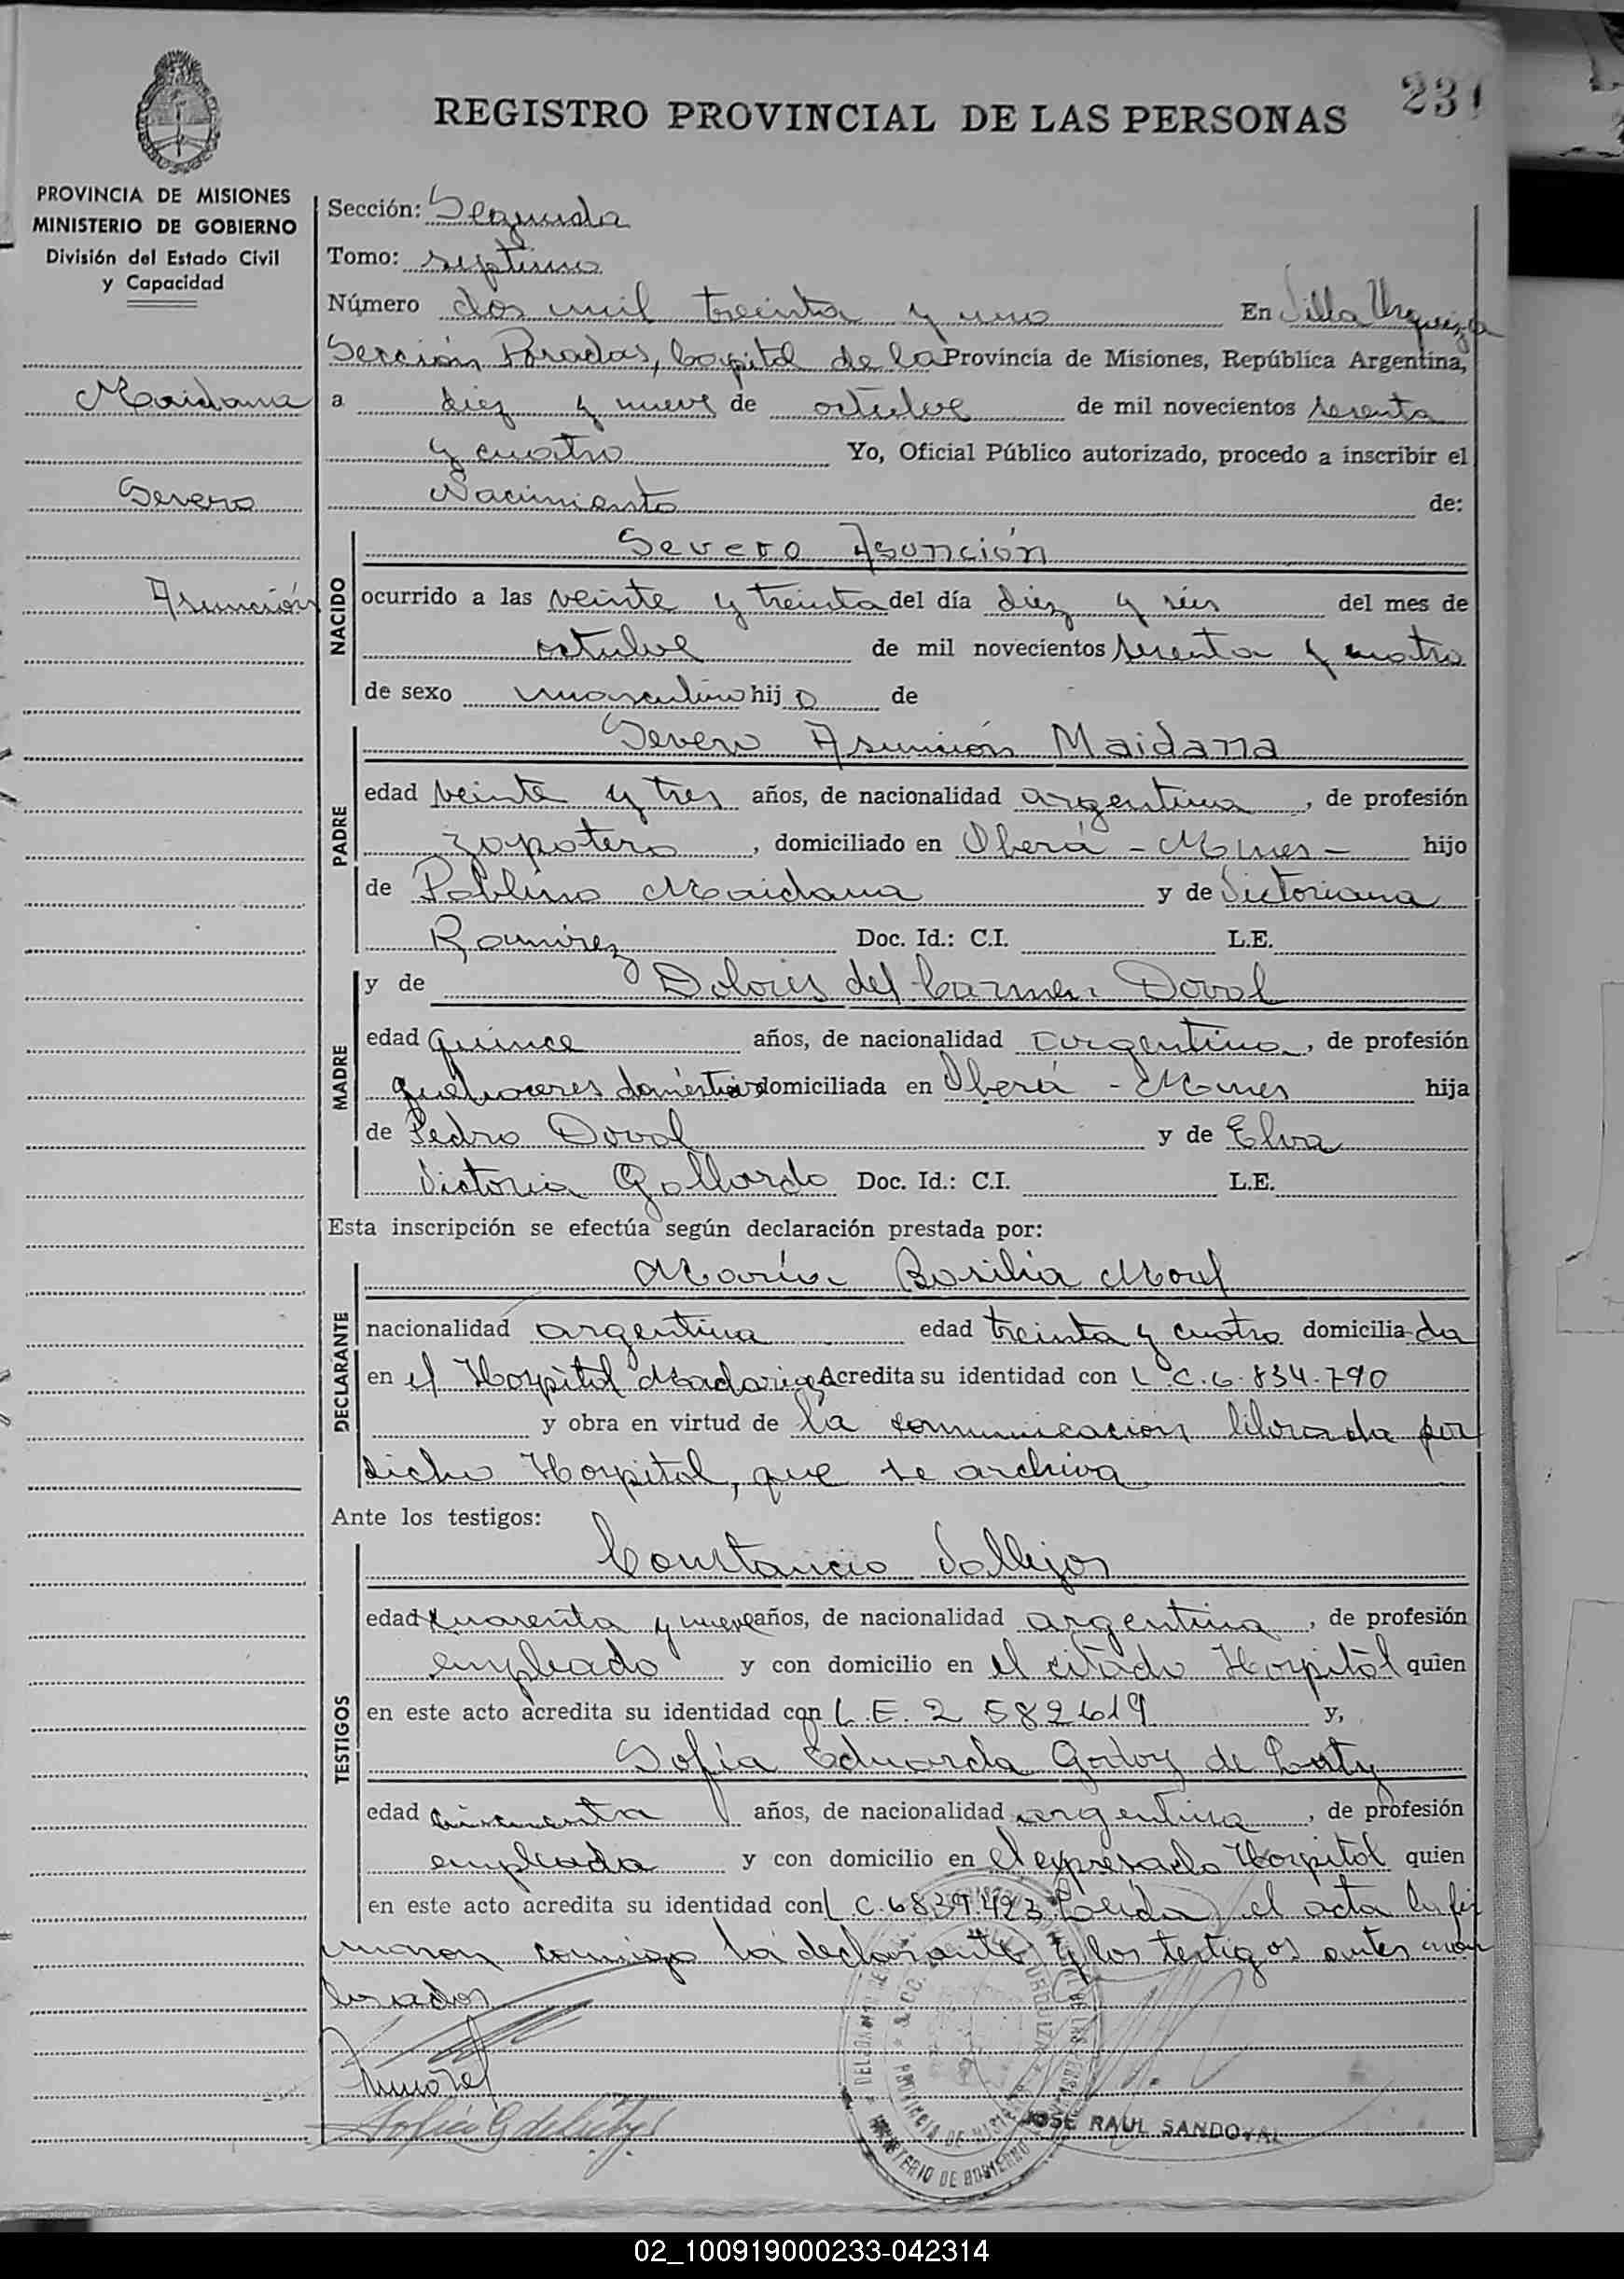 231
REGISTRO PROVINCIAL DE LAS PERSONAS
PROVINCIA DE MISIONES
MINISTERIO DE GOBIERNO
División del Estado Civil
y Capacidad
Maidana
Severo
Asunción
Sección: Segunda
Tomo: septimo
Número dos mil treinta y uno En Villa Urquiza
Sección Posadas, Capital de la Provincia de Misiones, República Argentina,
a diez y nueve de octubre de mil novecientos sesenta
y cuatro Yo, Oficial Público autorizado, procedo a inscribir el
Nacimiento de:
NACIDO
Severo Asunción
ocurrido a las veinte y treinta del día diez y seis del mes de
octubre de mil novecientos sesenta y cuatro
de sexo masculino hijo de
PADRE
Severo Asunción Maidana
edad veinte y tres años, de nacionalidad argentina, de profesión
zapatero, domiciliado en Oberá - Mnes - hijo
de Pablino Maidana y de Victoriana
Ramirez Doc. Id.: C.I. L.E.
MADRE
y de Dolores del Carmen Doval
edad quince años, de nacionalidad argentina, de profesión
quehaceres domésticos domiciliada en Oberá - Mnes hija
de Pedro Doval y de Elva
Victoria Gallardo Doc. Id.: C.I. L.E.
Esta inscripción se efectúa según declaración prestada por:
DECLARANTE
María Basilia
nacionalidad argentina edad treinta y cuatro domicilia-da
en el Hospital Madariaga Acredita su identidad con L.C. 6.834.790
y obra en virtud de la comunicación librada por
dicho Hospital, que se archiva
Ante los testigos:
TESTIGOS
Constancio Vallejos
edad cuarenta y nueve años, de nacionalidad argentina, de profesión
empleado y con domicilio en el citado Hospital quien
en este acto acredita su identidad con L.E. 2 582619 y,
Sofía Eduarda Godoy de
edad cincuenta años, de nacionalidad argentina, de profesión
empleada y con domicilio en el expresado Hospital quien
en este acto acredita su identidad con L.C. 6839.423 Leída el acta la fir
maron conmigo la declarante y los testigos antes nom
brados
JOSE RAUL SANDOVAL
PROVINCIA DE MISIONES
MINISTERIO DE GOBIERNO
02_100919000233-042314